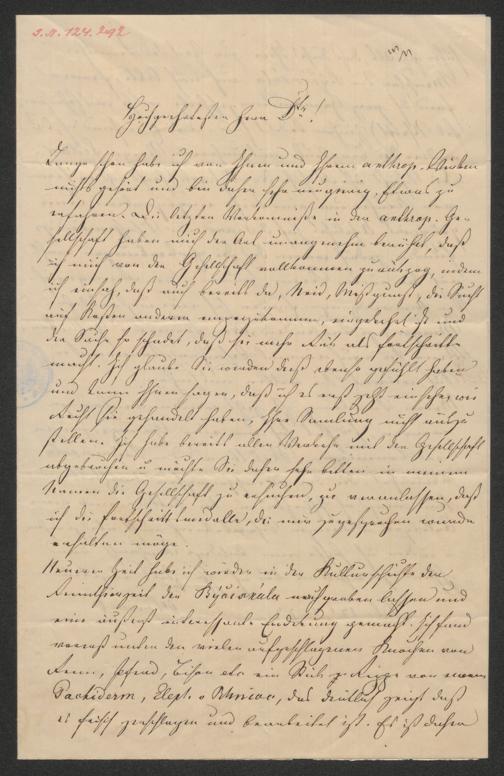 I.N. 124.292
Hochgeehrtester Herr Dtr!
Lange schon habe ich von Ihnen und Ihrem anthrop. Wirken
nichts gehört und bin daher sehr neugierig, Etwas zu
erfahren. Die letzten Vorkomniße in der anthrop. Ge-
sellschaft haben mich der Art unangenehm berührt, daß
ich mich von der Gesellschaft vollkommen zurückzog, indem
ich einsah, daß auch bereits da, Neid, Mißgunst, die Sucht
auf Kosten anderer emporzukommen, eingekehrt ist und
der Sache so schadet, daß sie mehr Rück als Fortschritte
macht. Ich glaube Sie werden dieß ebenso gefühlt haben
und kann Ihnen sagen, daß ich es erst jetzt einsehe, wie
Recht Sie gehandelt haben, Ihre Samlung nicht auszu-
stellen. Ich habe bereits allen Verkehr mit der Gesellschaft
abgebrochen u möchte Sie daher sehr bitten in meinem
Namen die Gesellschaft zu ersuchen, zu veranlassen, daß
ich die Fortschrittsmedaille, die mir zugesprochen wurde
erhalten möge.
Neuerer Zeit habe ich wieder in der Kulturschichte der
Rennthierzeit der Býčískála ausgraben lassen und
eine äußerst interessante Entdekung gemacht. Ich fand
vorerst unter den vielen aufgeschlagenen Knochen von
Renn, Pferd, Bison etc ein Stük Rippe von einem
Pachiderm, Eleph. o Rhinoc, das deutlich zeigt daß
es frisch zerschlagen und bearbeitet ist. Es ist daher